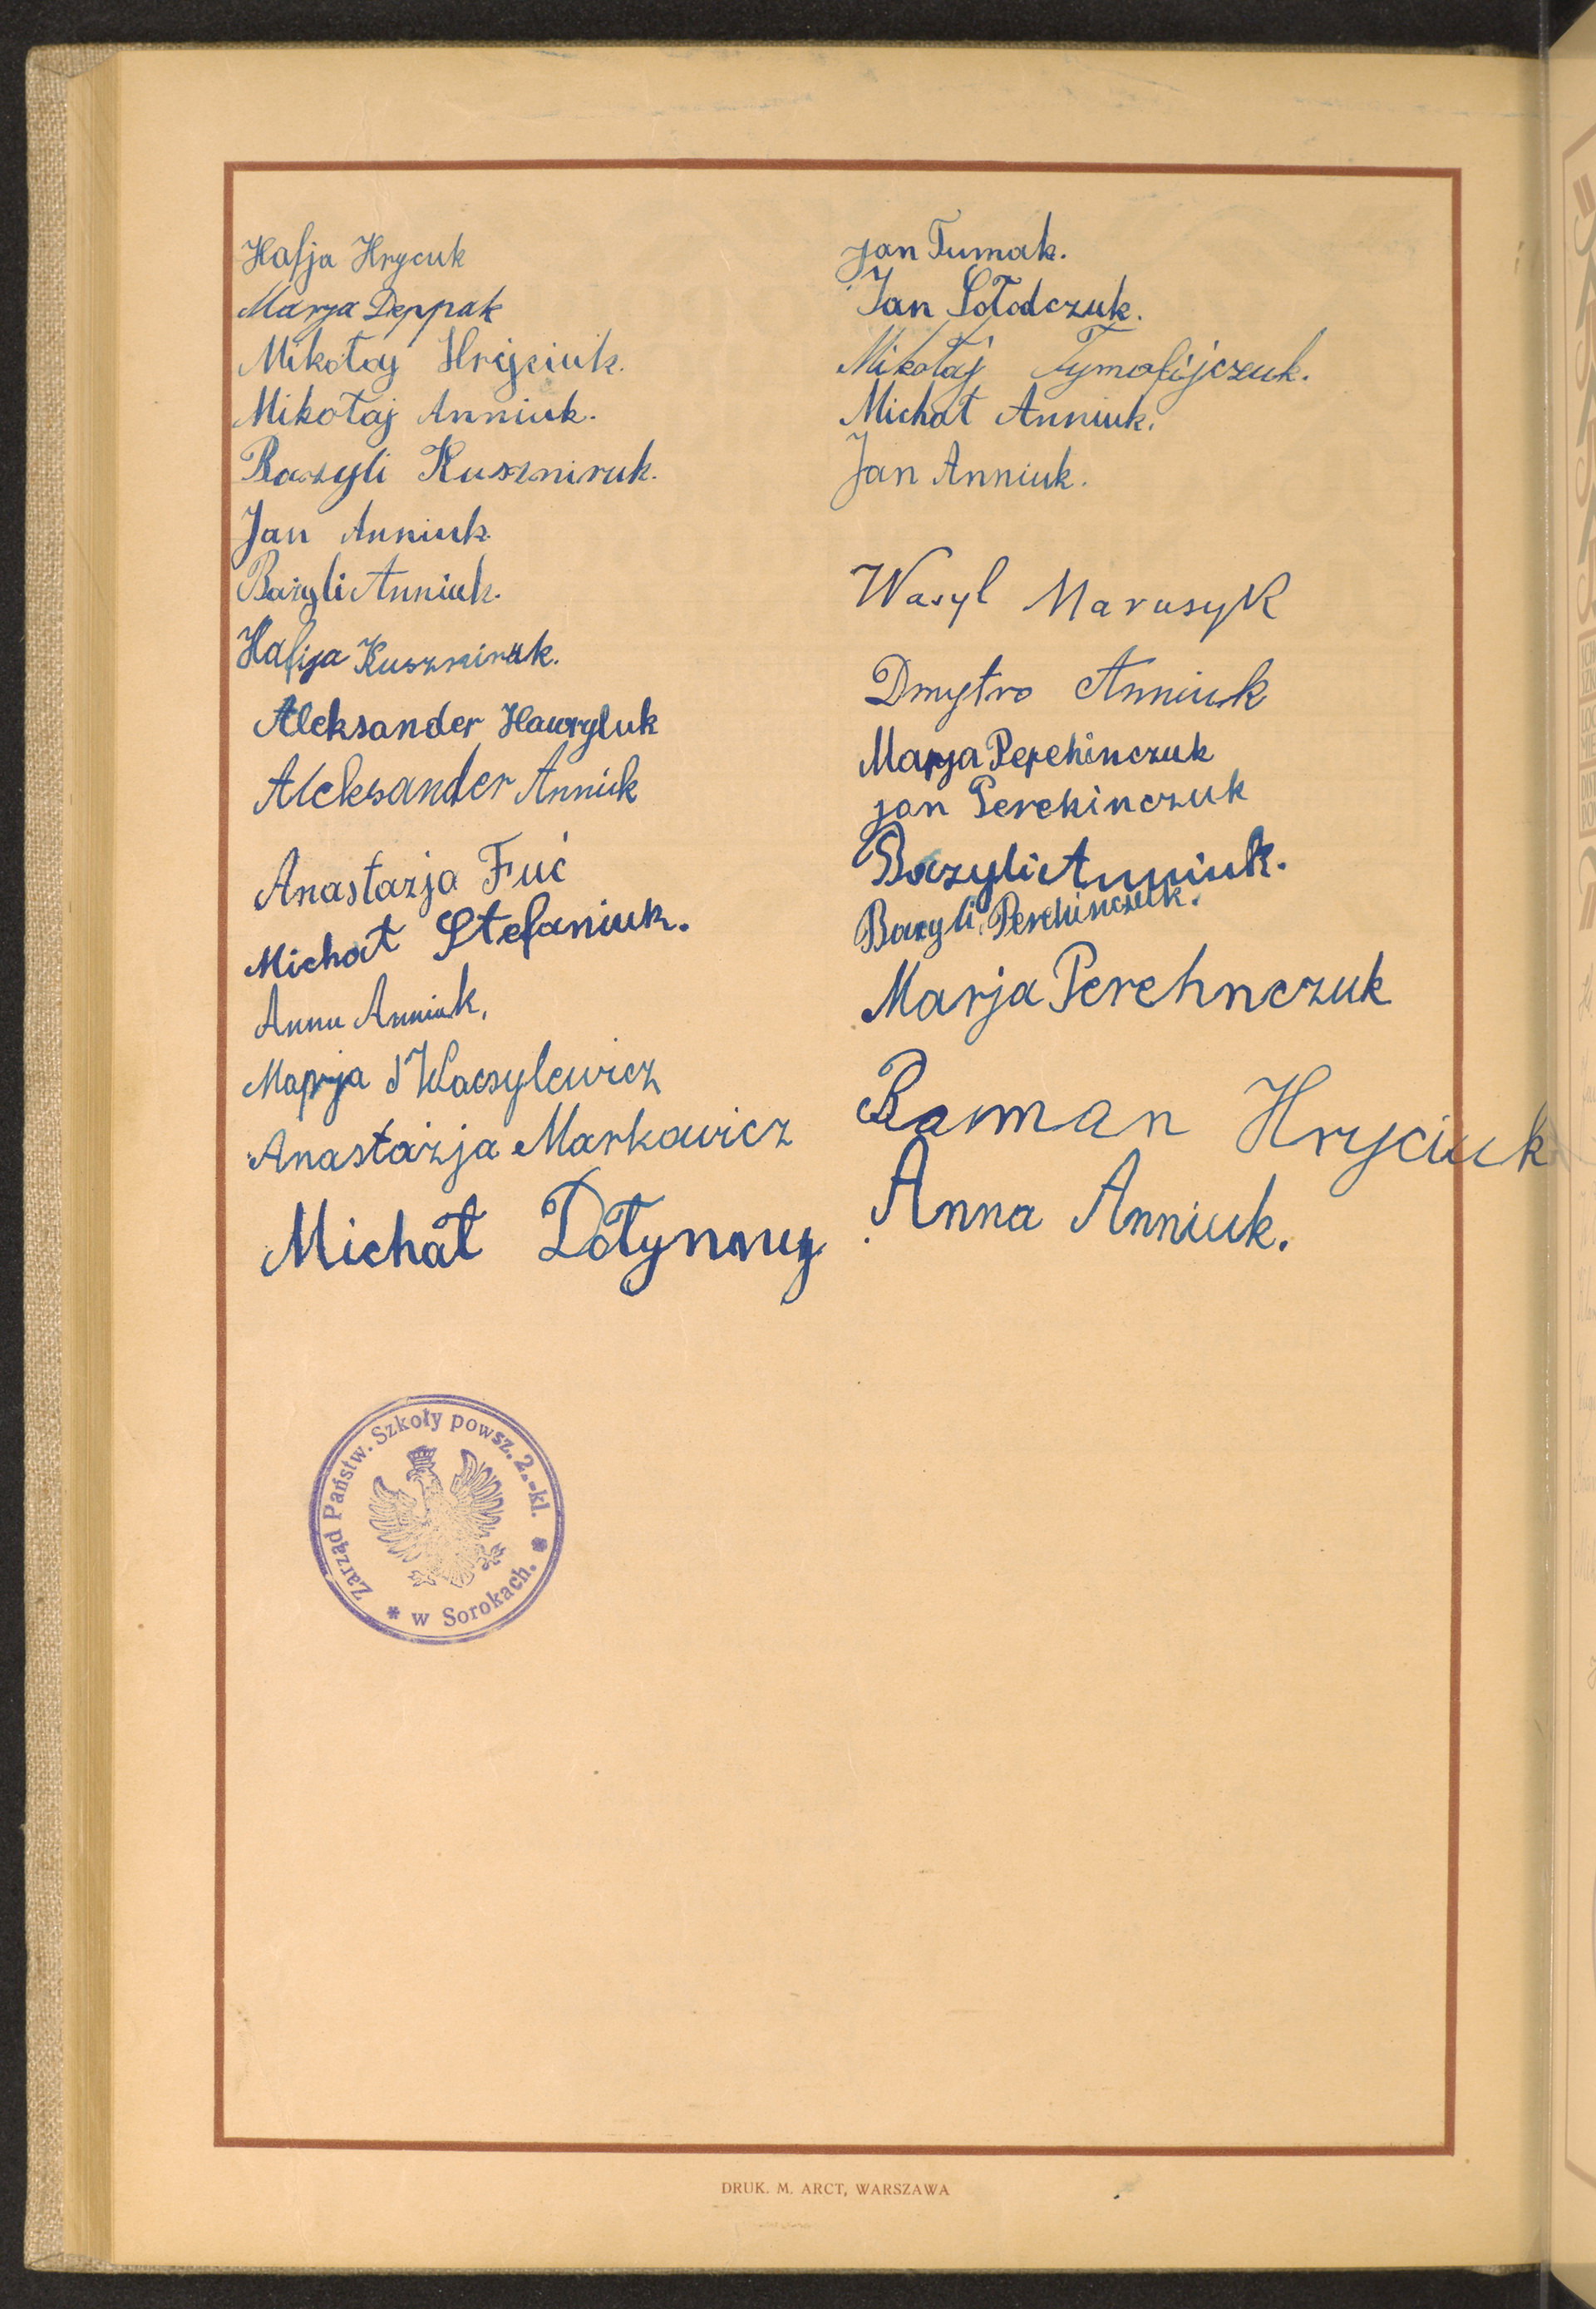 Hafja Hrycuk
Marja Deppak
Mikołaj Hryciuk.
Mikołaj Anniuk.
Bazyli Kuszniruk.
Jan Anniuk.
Bazyli Anniuk.
Hafija Kuszniruk.
Aleksander Hawryluk
Aleksander Anniuk
Anastazja Fuć
Michał Stefaniuk.
Anna Anniuk.
Marja Wacsylewicz
Anastazja Markawicz
Michał Dołynnuj
Jan Tumak.
Jan Sołodczuk.
Mikołaj Tymofijczuk.
Michał Anniuk.
Jan Anniuk.
Wasyl Marusyk
Dmytro Anniuk
Marja Perehinczuk
jan Perehinczuk
Bazyli Anniuk.
Bazyli Perehinczuk.
Marja Perehnczuk
Roman Hryciuk
Anna Anniuk.
Zarząd Państw. Szkoły powsz. 2.-kl.
* w Sorokach. *
DRUK. M. ARCT, WARSZAWA